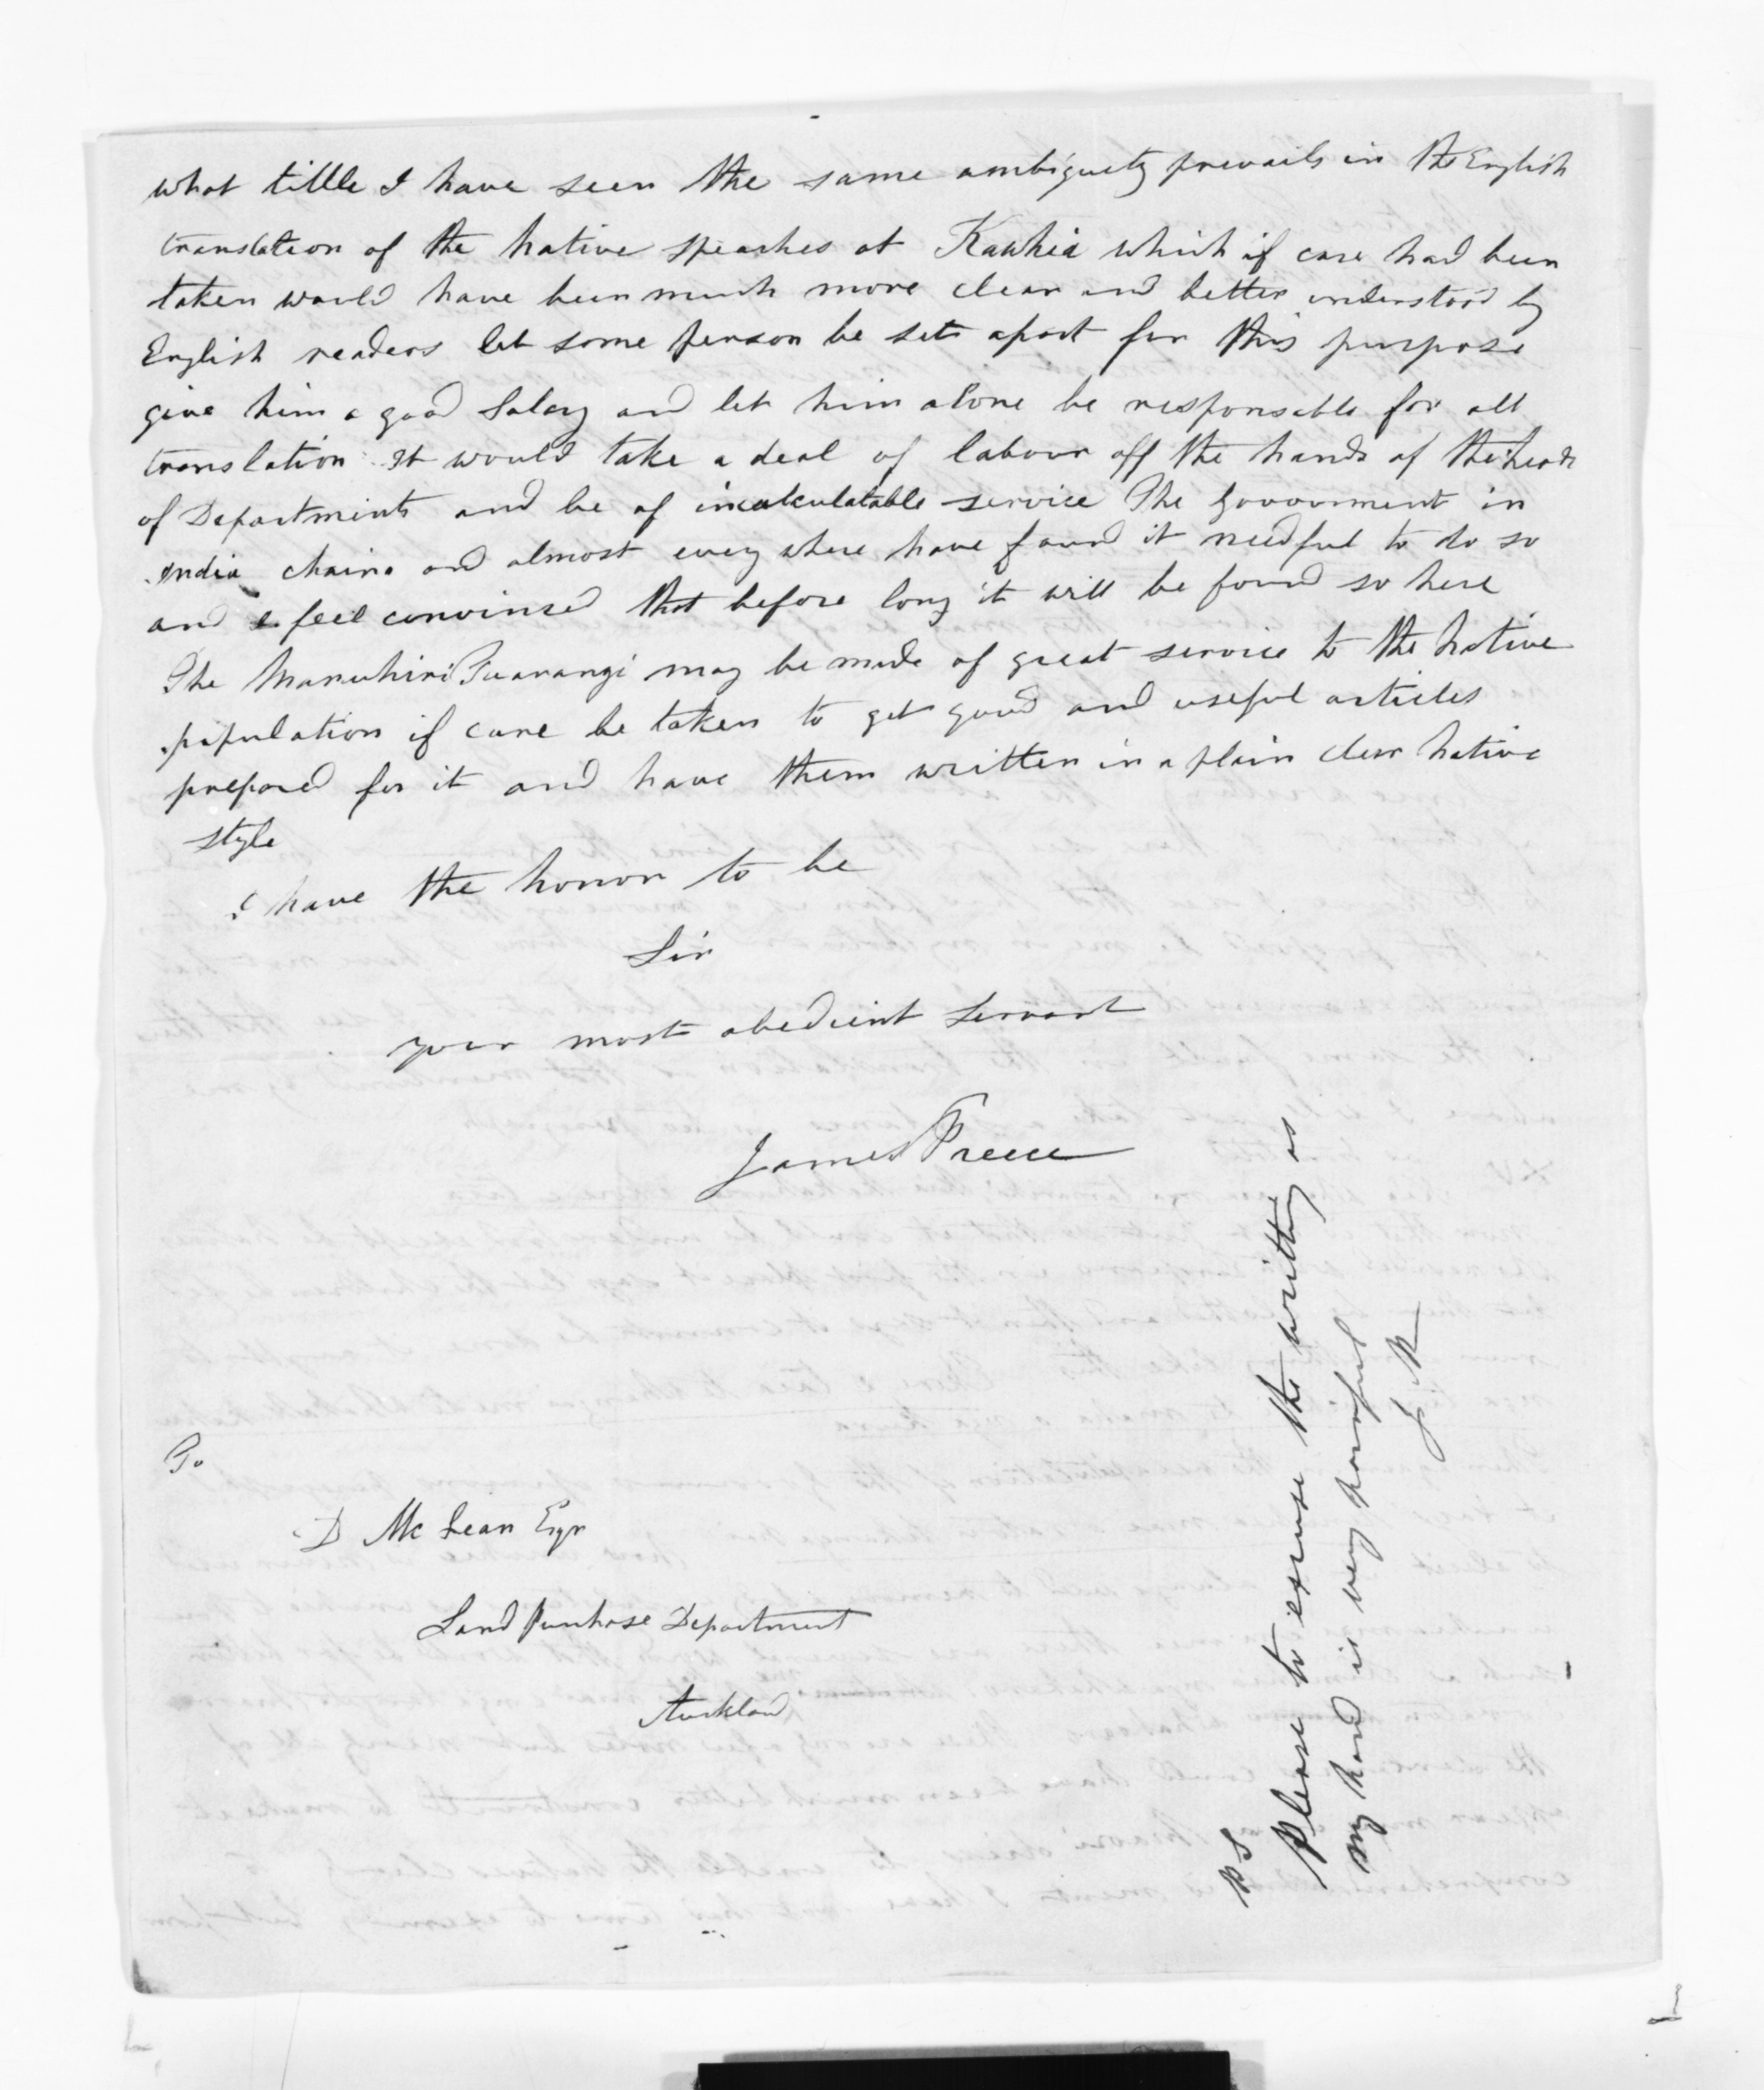 what little I have seen the same ambiguety prevails in the English
translation of the native speaches at Kawhia which if care had been
taken would have been much more clear and better understood by
English readers let some person be set apart for this purpose
give him a good Salary and let him alone be responsable for all
translation It would take a deal of labour off the hands of the heads
of Departments and be of incalculatable service The Government in
India chaina and almost every where have found it needful to do so
and I feel convinsed that before long it will be found so here
The Manuhiri Tuarangi may be made of great service to the native
population if care be taken to get good and useful articles
prepared for it and have them written in a plain clear native
style
I have the honor to be
Sir
your most obedient Servant
James Preece
To
D McLean Esqr
Land Purchase Department
Auckland
P S
Please to excuse the writting as
my hand is very painful
J P